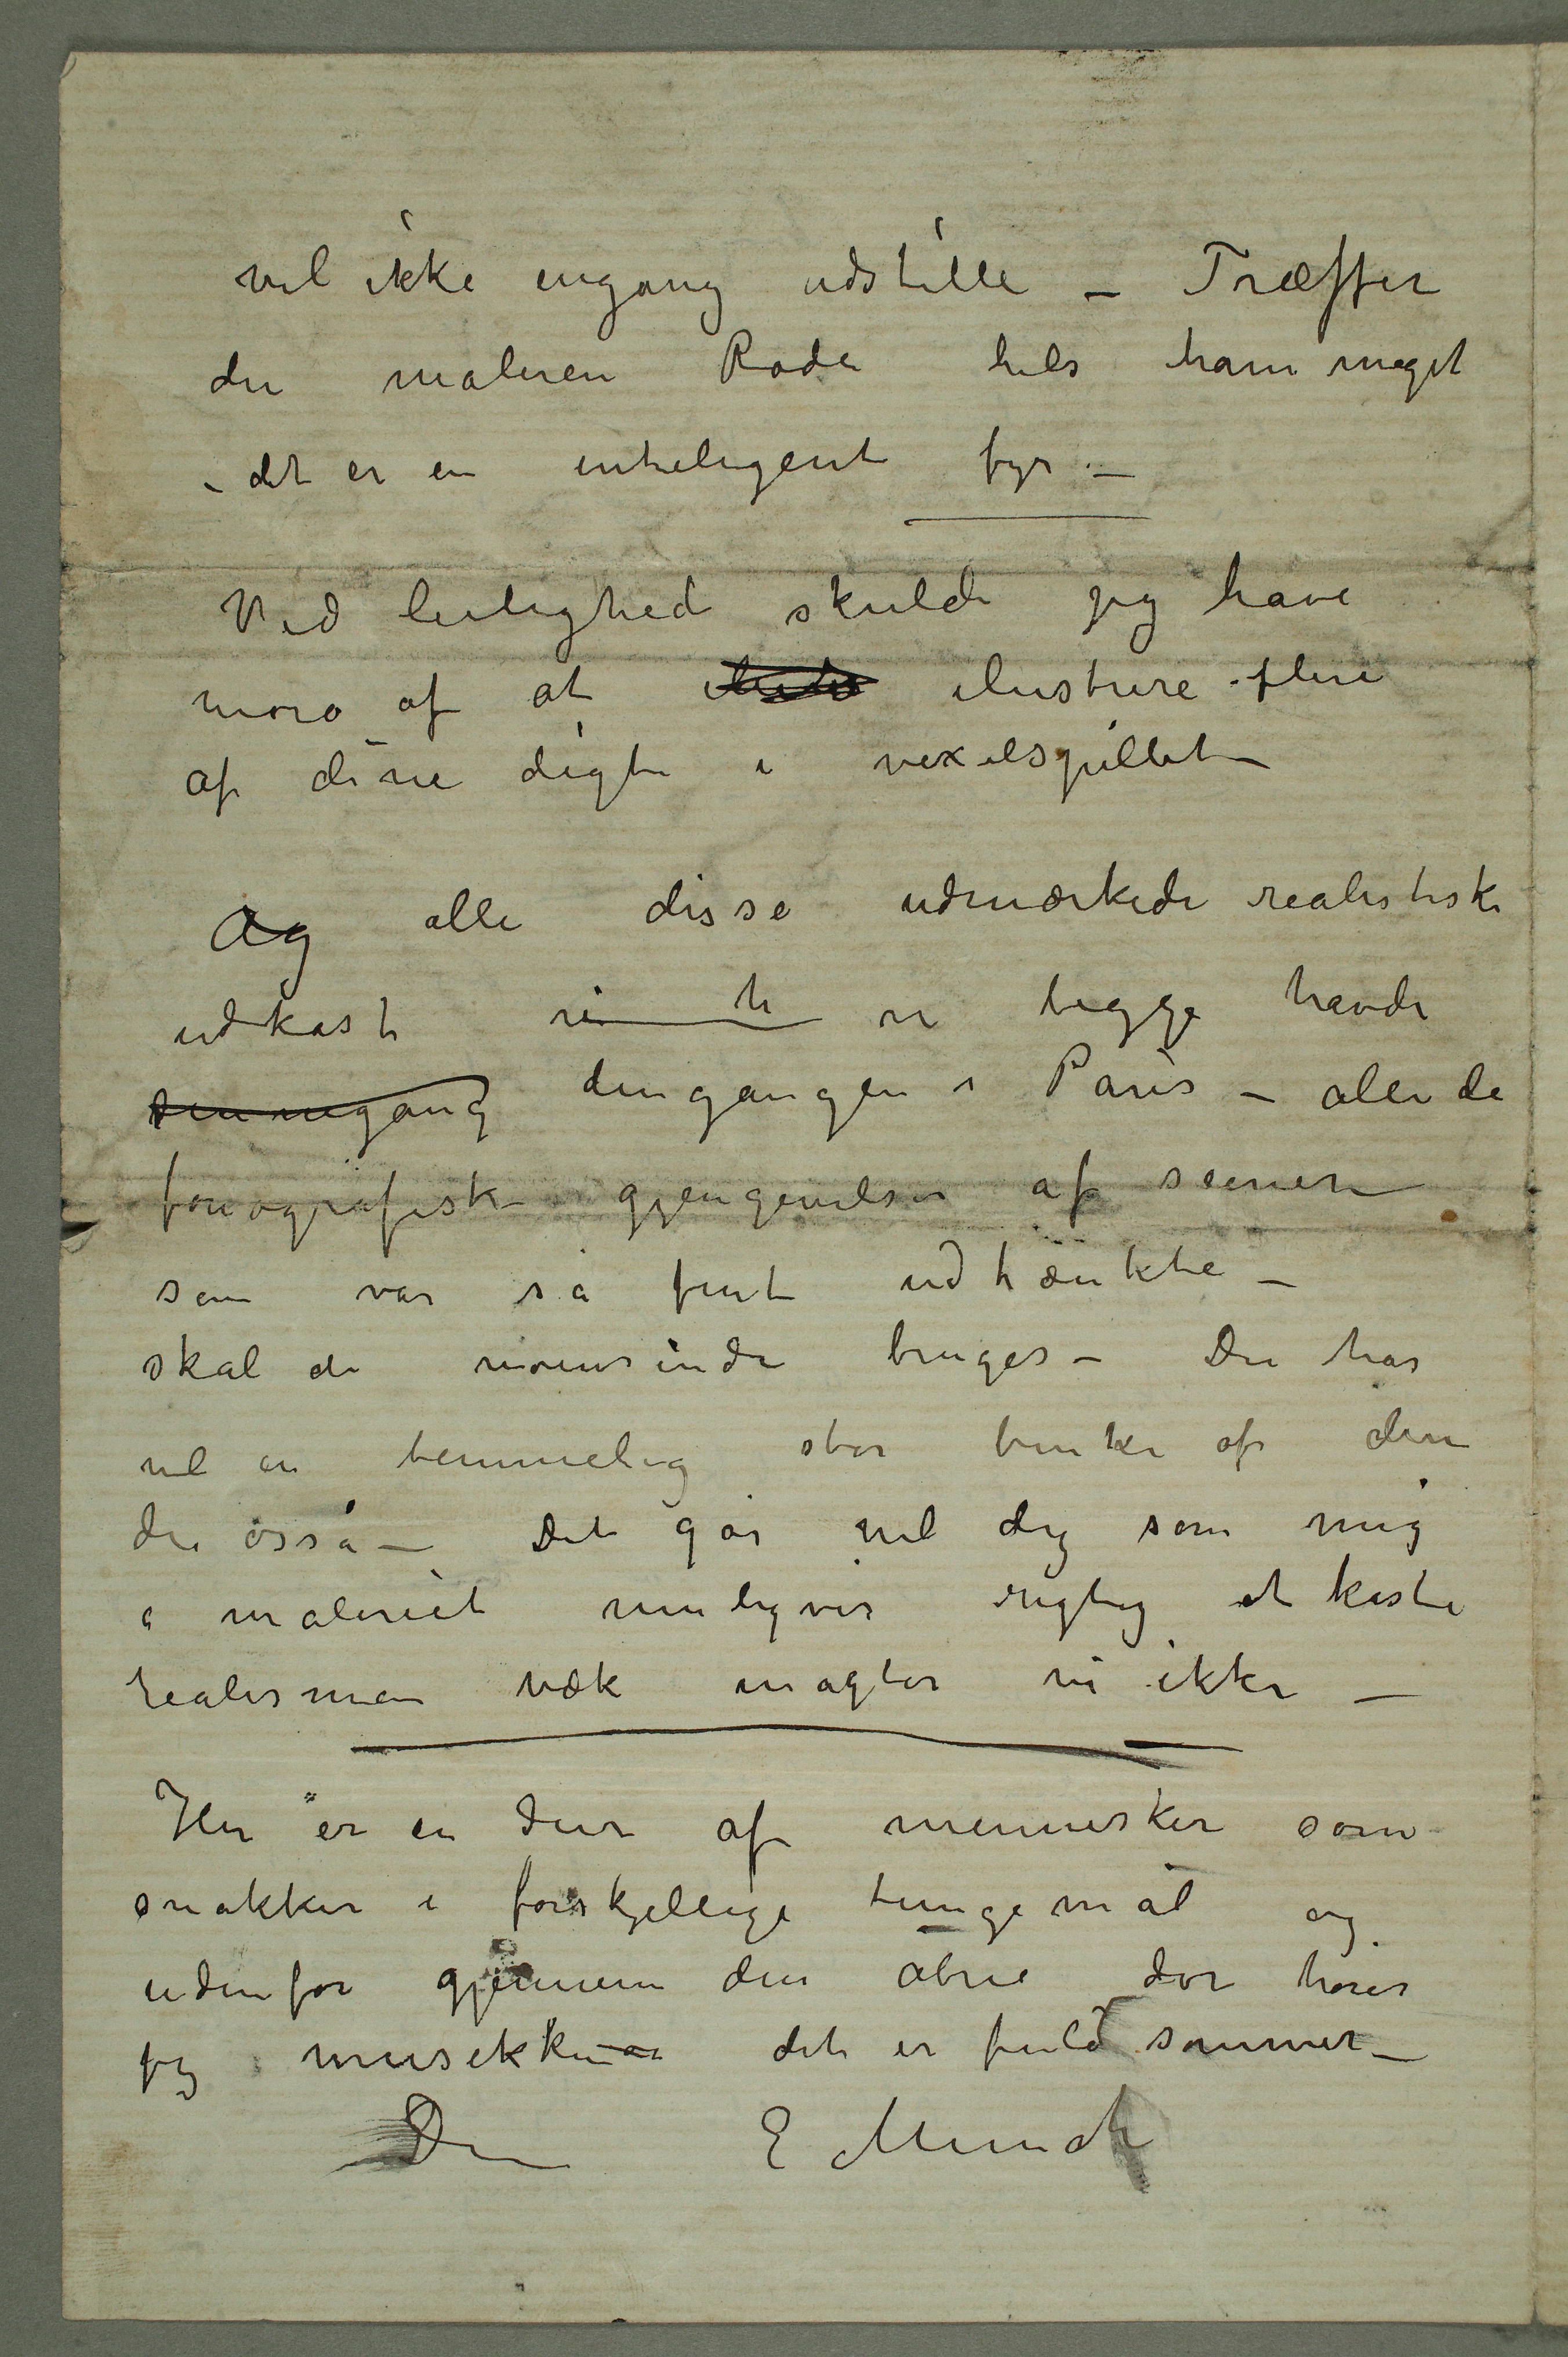 vil ikke engang udstille – Træffer
du maleren Rode hils ham meget
– det er en inteligent fyr –
Ved leilighed skulde jeg have
moro af at ilustrere flere
af dine digte i vexelspillet –
Og alle disse udmærkede realistiske
udkast vi begge havde
dengangen i Paris – alle de
fonografiske gjengivelser af scener
som var så fint udtænkte –
skal de nonsinde bruges – Du har
vel en temmelig stor bunke af dem
du osså – Det går vel dig som mig
i maleriet muligvis rigtig at kaste
realismen væk magter vi ikke –
Her er en dur af mennesker som
snakker i forskjellige tungemål og
udenfor gjennem den åbne dør hører
jeg musikken det er fuld sommer –
Din E Munch